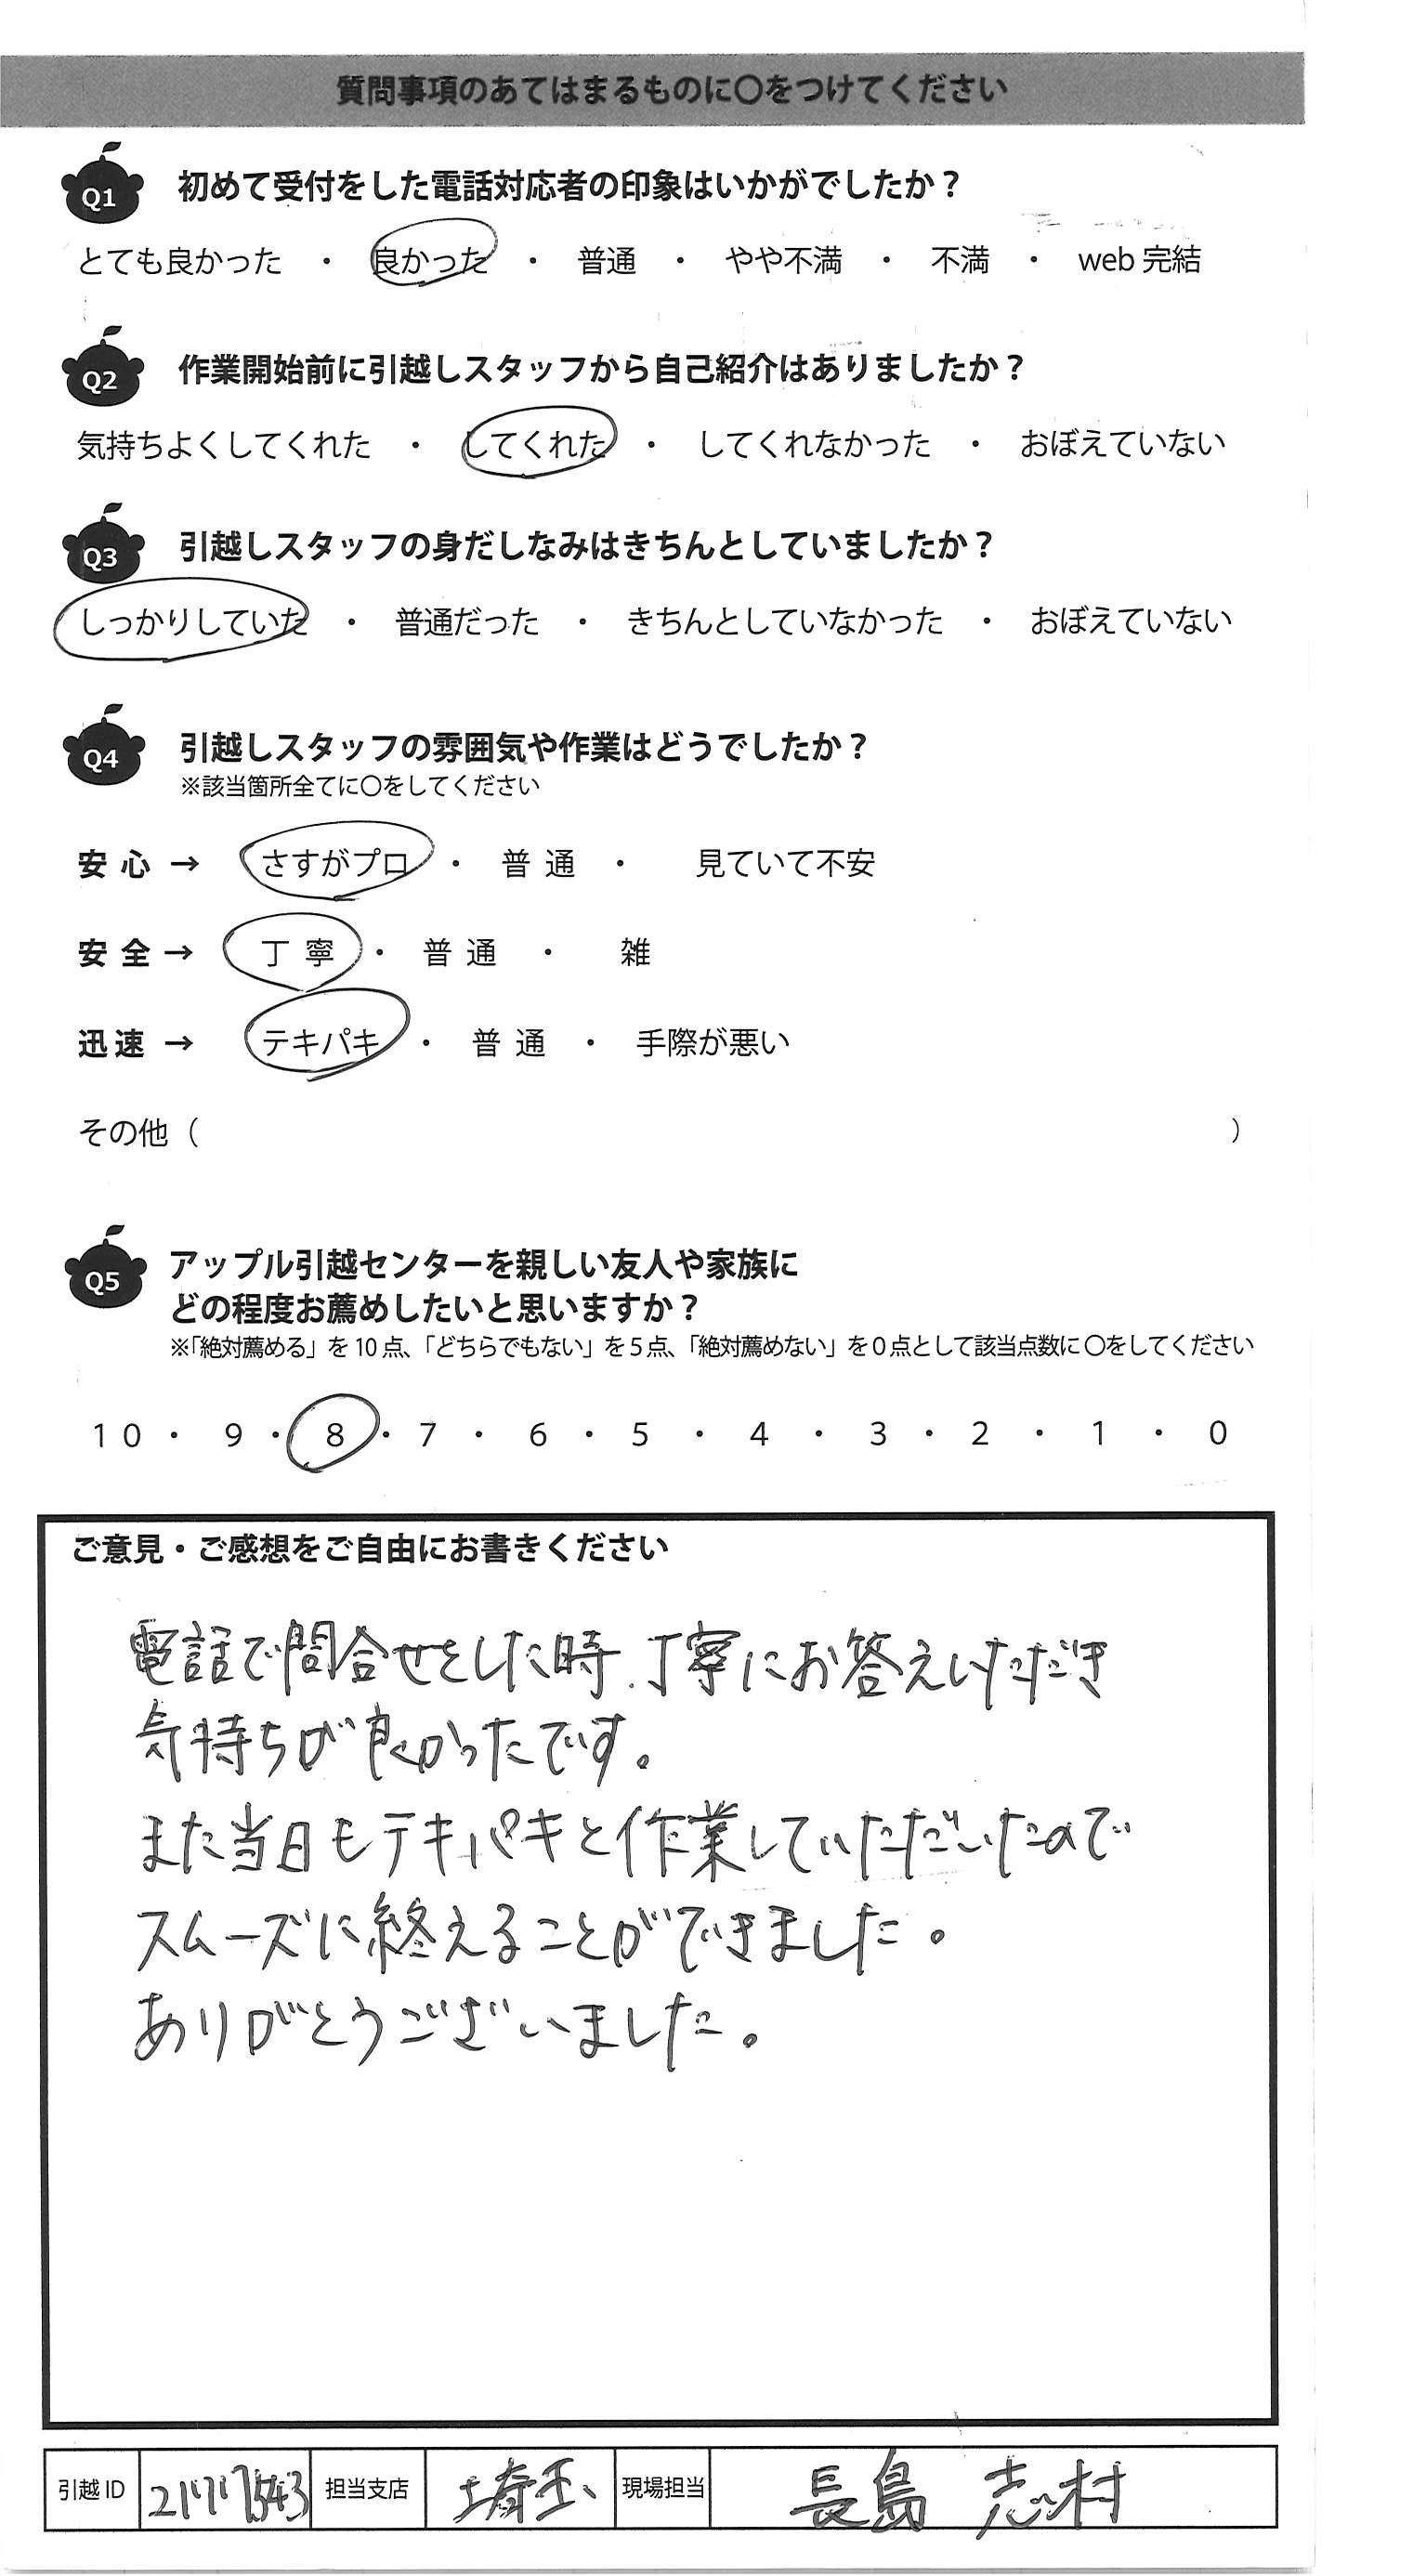 質問事項のあてはまるものに〇をつけてください
Q1 初めて受付をした電話対応者の印象はいかがでしたか？
とても良かった ・ 良かった ・ 普通 ・ やや不満 ・ 不満 ・ web 完結
Q2 作業開始前に引越しスタッフから自己紹介はありましたか？
気持ちよくしてくれた ・ してくれた ・ してくれなかった ・ おぼえていない
Q3 引越しスタッフの身だしなみはきちんとしていましたか？
しっかりしていた ・ 普通だった ・ きちんとしていなかった ・ おぼえていない
Q4 引越しスタッフの雰囲気や作業はどうでしたか？
※該当箇所全てに〇をしてください
安心 → さすがプロ ・ 普通 ・ 見ていて不安
安全 → 丁寧 ・ 普通 ・ 雑
迅速 → テキパキ ・ 普通 ・ 手際が悪い
その他（ ）
Q5 アップル引越センターを親しい友人や家族に
どの程度お薦めしたいと思いますか？
※「絶対薦める」を10点、「どちらでもない」を5点、「絶対薦めない」を0点として該当点数に〇をしてください
10 ・ 9 ・ 8 ・ 7 ・ 6 ・ 5 ・ 4 ・ 3 ・ 2 ・ 1 ・ 0
ご意見・ご感想をご自由にお書きください
電話で問合せをした時、丁寧にお答えいただき
気持ちが良かったです。
また当日もテキパキと作業していただいたので
スムーズに終えることができました。
ありがとうございました。
引越ID 担当支店 埼玉 現場担当 長島 志村